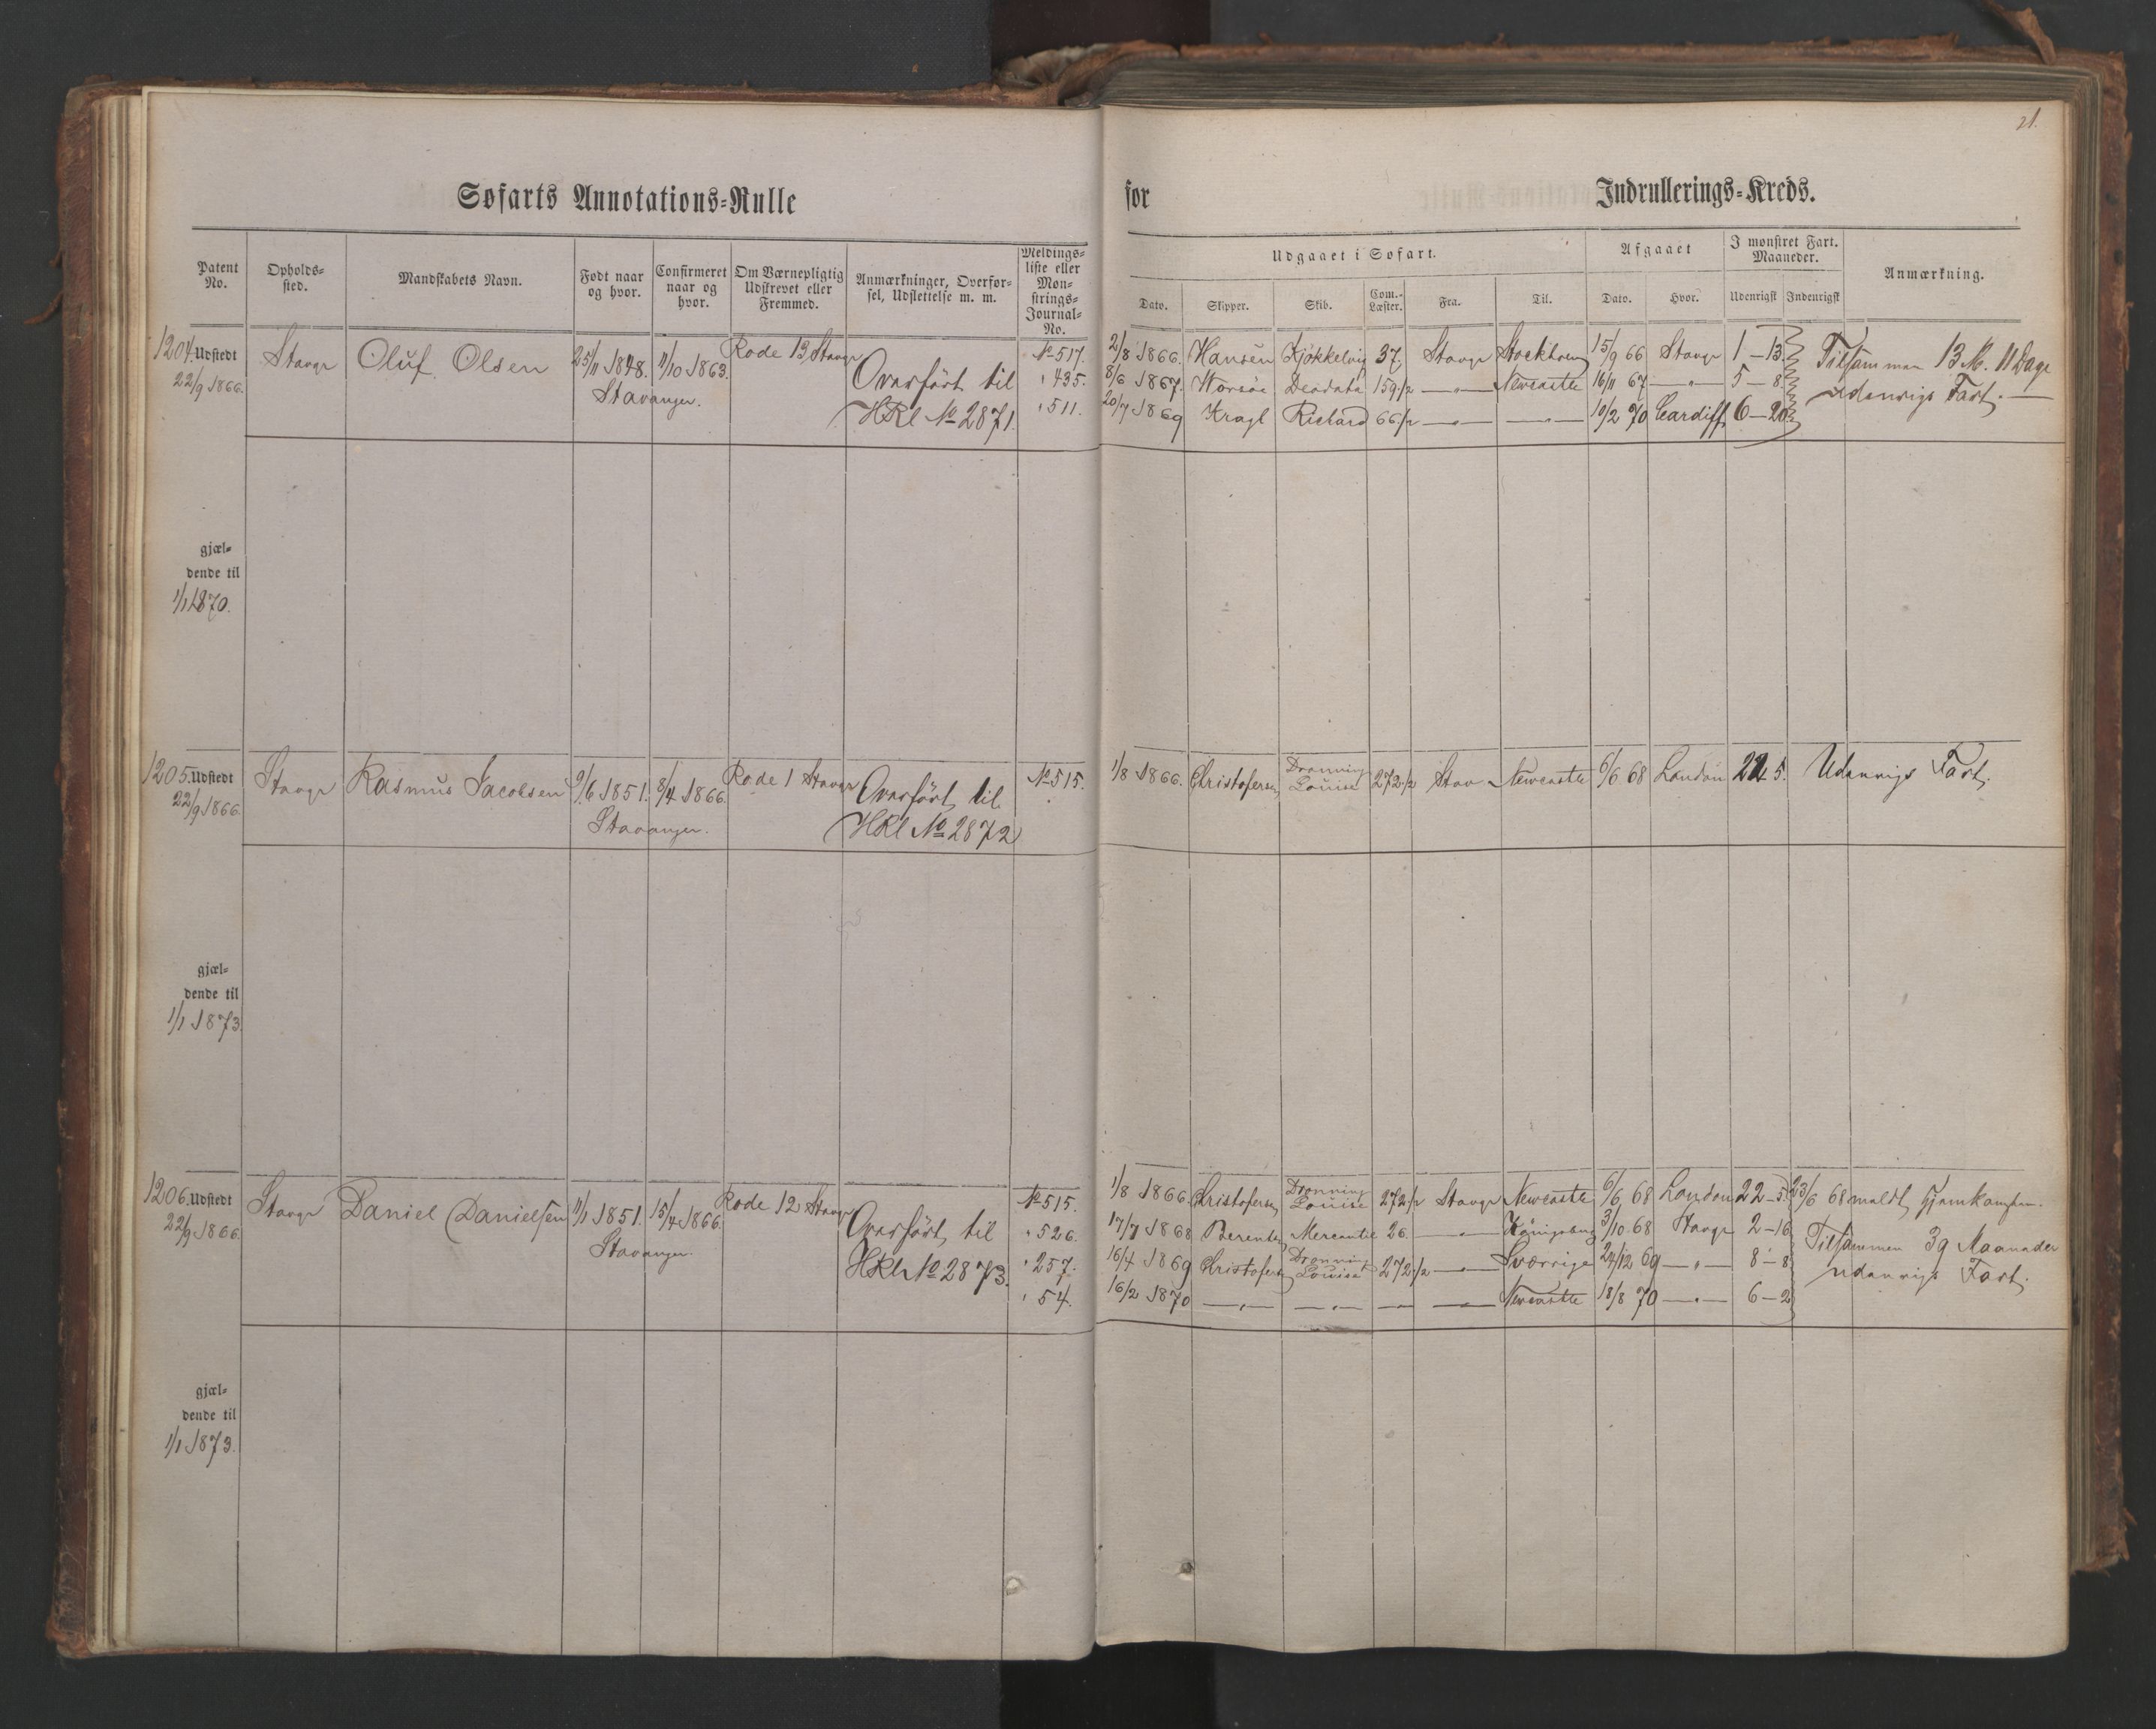 21.
Søfarts Annotations-Rulle for Indrullerings-Kreds.
Patent No. Opholds-sted. Mandskabets Navn. Født naar og hvor. Confirmeret naar og hvor. Om Værnepligtig Udskrevet eller Fremmed. Anmærkninger, Overfør-sel, Udslettelse m. m. Meldings-liste eller Møn-strings-Journal-No.
Udgaaet i Søfart. Afgaaet I mønstret Fart. Maaneder. Anmærkning.
Dato. Skipper. Skib. Com.-Læster. Fra. Til. Dato. Hvor. Udenrigsk Indenrigsk
1204. Udstedt Stavgr Oluf Olsen 25/11 1848. 11/10 1863. Rode 13 Stavgr No 517. 2/8 1866. Hansen Kjökkelvig 37. Stavgr Stockholm 15/9 66 Stavgr 1-13. Tilsammen 13 M. 11 Dage
22/9 1866. Stavanger. Overført til " 435. 8/6 1867. Worsöe Deodata 159 1/2 — " — Newcastle 16/11 67 — " — 5-8. udenrigs Fart.
HRl No 2871. " 511. 20/7 1869 Kragl Richard 66 1/2 — " — — " — 10/2 70 Cardiff 6-20.
gjæl-
dende til
1/1 1870.
1205. Udstedt Stavgr Rasmus Jacobsen 9/6 1851. 8/4 1866. Rode 1 Stavgr No 515. 1/8 1866. Christofersen Dronning Louise 272 1/2 Stav Newcastle 6/6 68 London 22 5. Udenrigs Fart.
22/9 1866. Stavanger. Overført til
HRl No 2872
gjæl-
dende til
1/1 1873.
1206. Udstedt Stavgr Daniel Danielsen 11/1 1851. 15/4 1866. Rode 12 Stavgr No 515. 1/8 1866. Christofersen Dronning Louise 272 1/2 Stavgr Newcastle 6/6 68 London 22-5. 23/6 68 meldt Hjemkomsten.
22/9 1866. Stavanger. Overført til " 526. 17/7 1868 Berentsen Mercantie 26. — " — Königsberg 3/10 68 Stavgr 2-16 Tilsammen 39 Maaneder
HRl No 2873. " 257. 16/4 1869 Christofersen Dronning Louise 272 1/2 — " — Sverrige 24/12 69 — " — 8-8 udenrigs Fart.
" 54. 16/2 1870 — " — — " — — — " — Newcastle 18/8 70 — " — 6-2
gjæl-
dende til
1/1 1873.